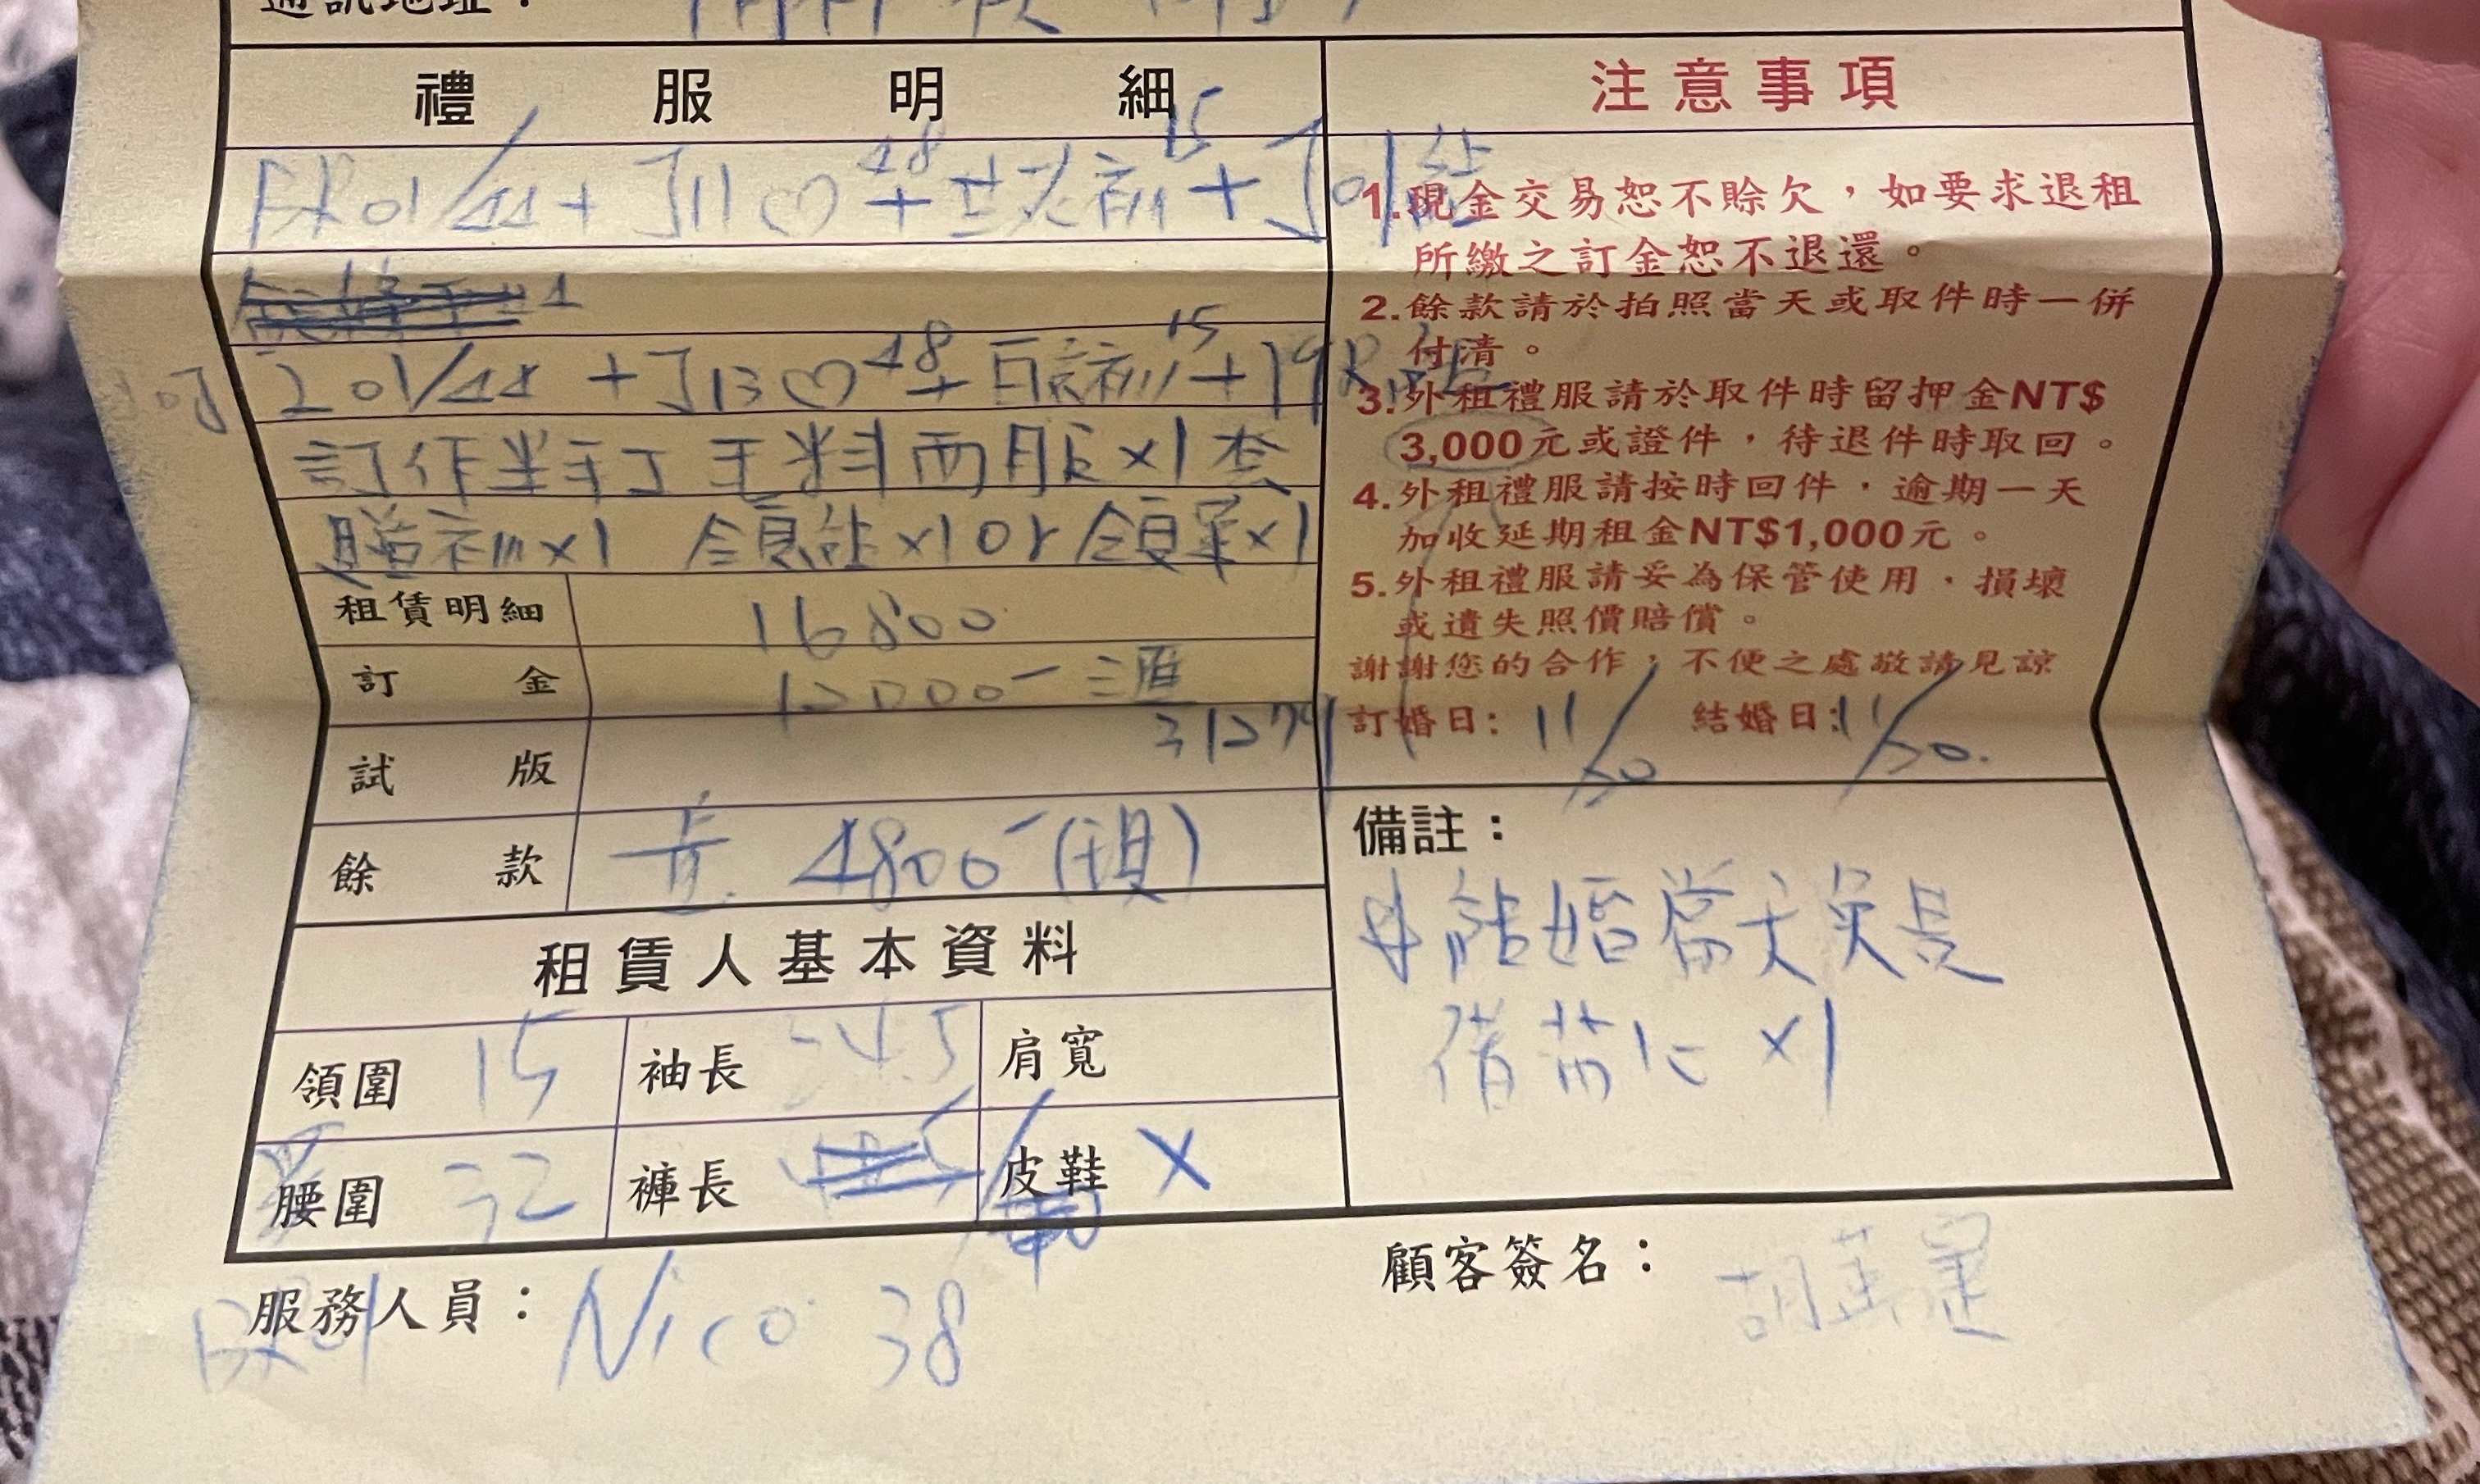 通訊地址：
禮服明細
BR01/44+J11♡48+共衫15+J01結
1
201/44+J13♡48+白襯衫15+198結
訂作半訂毛料西服×1套
贈衫×1 領結×1 or 領帶×1
租賃明細 16800
訂金 12000-匯
31274
試版
餘款 卡. 4800-(現)
租賃人基本資料
領圍 15 袖長 肩寬
腰圍 32 褲長 皮鞋 ×
服務人員：Nico 38
BR01
注意事項
1.現金交易恕不賒欠，如要求退租
所繳之訂金恕不退還。
2.餘款請於拍照當天或取件時一併
付清。
3.外租禮服請於取件時留押金NT$
3,000元或證件，待退件時取回。
4.外租禮服請按時回件，逾期一天
加收延期租金NT$1,000元。
5.外租禮服請妥為保管使用，損壞
或遺失照價賠償。
謝謝您的合作，不便之處敬請見諒
訂婚日：11/30 結婚日：11/30.
備註：
#結婚當天
借 ×1
顧客簽名：胡